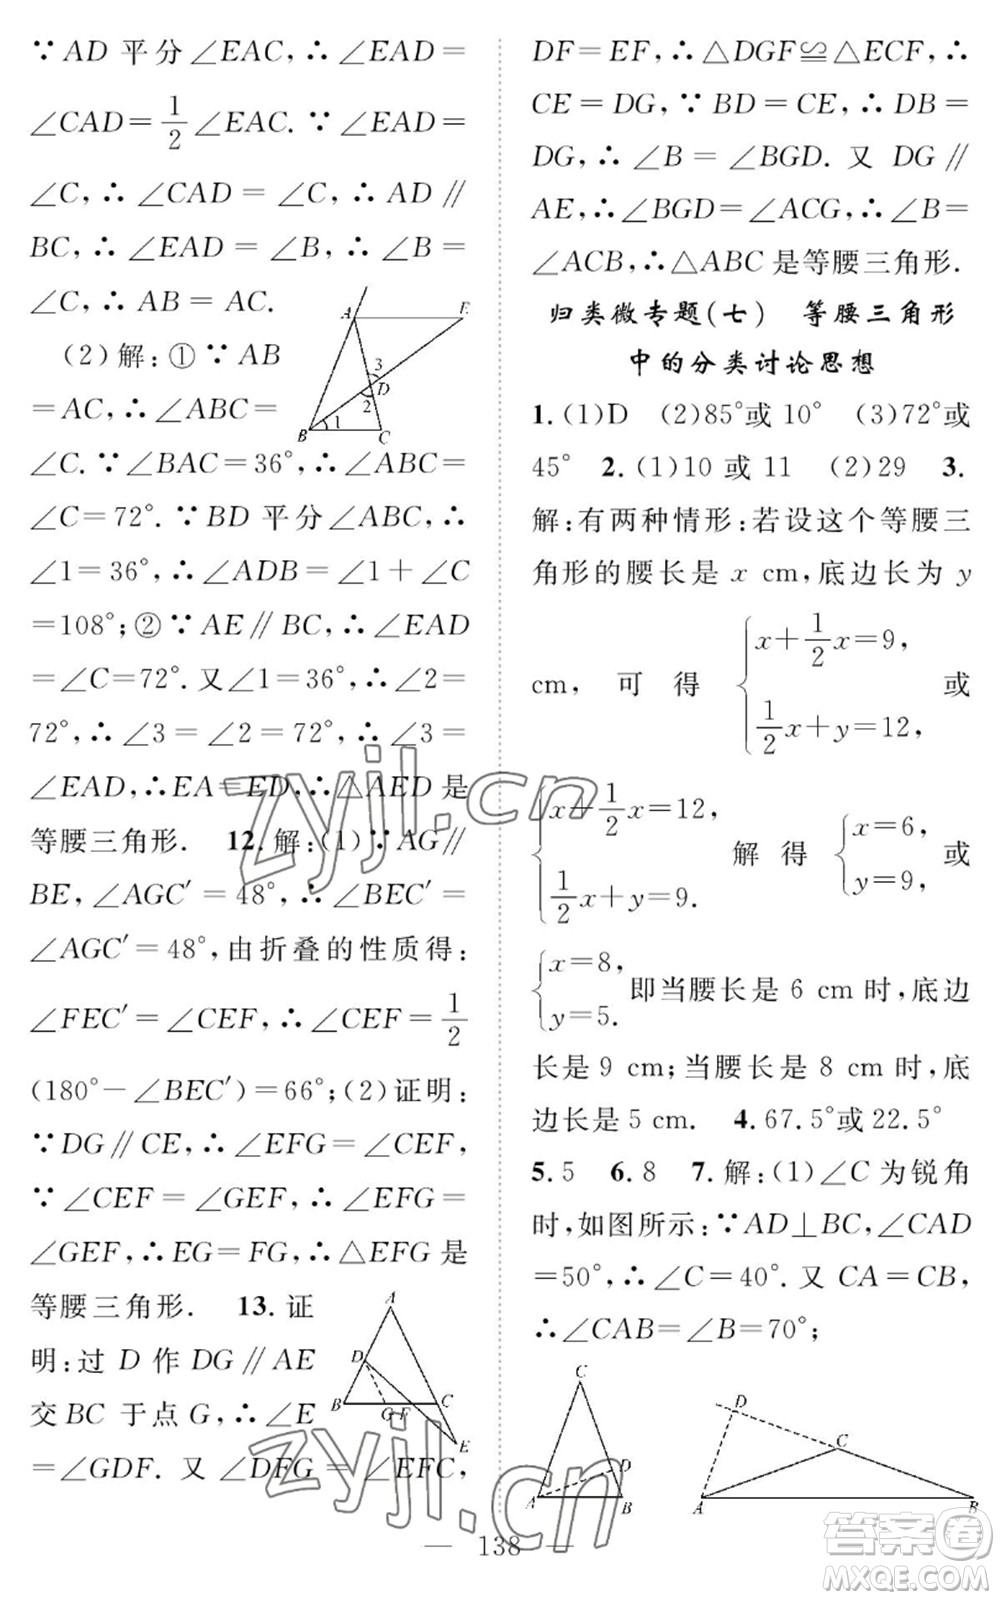 ∵ AD 平分∠EAC,∴∠EAD=
∠CAD=1/2∠EAC. ∵∠EAD=
∠C,∴∠CAD=∠C,∴ AD∥
BC,∴∠EAD=∠B,∴∠B=
∠C,∴ AB = AC.
(2)解:①∵ AB
=AC,∴∠ABC=
∠C.∵∠BAC=36°,∴∠ABC=
∠C=72°.∵BD 平分∠ABC,∴
∠1=36°,∴∠ADB=∠1+∠C
=108°;②∵AE∥BC,∴∠EAD
=∠C=72°.又∠1=36°,∴∠2=
72°,∴∠3=∠2=72°,∴∠3=
∠EAD,∴EA=ED,∴△AED 是
等腰三角形. 12.解:(1)∵AG∥
BE,∠AGC′=48°,∴∠BEC′=
∠AGC′=48°,由折叠的性质得:
∠FEC′=∠CEF,∴∠CEF=1/2
(180°-∠BEC′)=66°;(2)证明:
∵DG∥CE,∴∠EFG=∠CEF,
∵∠CEF=∠GEF,∴∠EFG=
∠GEF,∴EG=FG,∴△EFG 是
等腰三角形. 13.证
明:过 D 作 DG∥AE
交 BC 于点 G,∴∠E
=∠GDF.又∠DFG=∠EFC,
A E
3
D
2
B 1 C
A
D
B G F C
E
DF=EF,∴△DGF≌△ECF,∴
CE=DG,∵BD=CE,∴DB=
DG,∴∠B=∠BGD.又 DG∥
AE,∴∠BGD=∠ACG,∴∠B=
∠ACB,∴△ABC 是等腰三角形.
归类微专题(七) 等腰三角形
中的分类讨论思想
1.(1)D (2)85°或 10° (3)72°或
45° 2.(1)10 或 11 (2)29 3.
解:有两种情形:若设这个等腰三
角形的腰长是 x cm,底边长为 y
cm,可得{x+1/2x=9, 1/2x+y=12,或
{x+1/2x=12, 1/2x+y=9. 解得{x=6, y=9,或
{x=8, y=5. 即当腰长是 6 cm 时,底边
长是 9 cm;当腰长是 8 cm 时,底
边长是 5 cm. 4.67.5°或 22.5°
5.5 6.8 7.解:(1)∠C 为锐角
时,如图所示:∵AD⊥BC,∠CAD
=50°,∴∠C=40°.又 CA=CB,
∴∠CAB=∠B=70°;
C
D
A B
D
C
A B
138
zyjl.cn
zyjl.cn
答案圈
MXQE.COM